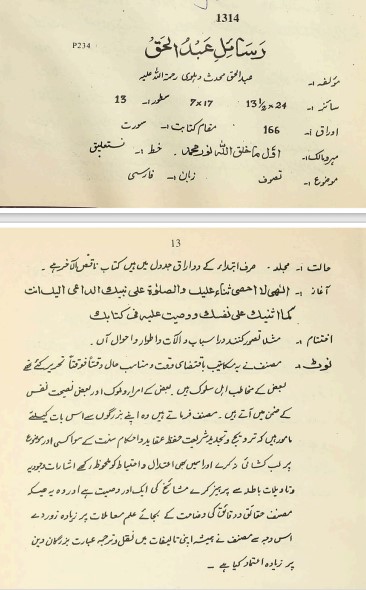 1314
P234
رسائلِ عبدُ الحق
مؤلف :- عبدالحق محدث دہلوی رحمۃ اللہ علیہ
سائز :- 13½ x 24 7 x 17 سطور :- 13
اوراق :- 166 مقام کتابت :- سورت
مہر و مالک :- اوّل ما خلق اللہ نور محمد . خط :- نستعلیق
موضوع :- تصوف زبان :- فارسی
13
حالت :- مجلد . صرف ابتداء کے دو اوراق جدول میں ہیں کتاب ناقص الآخر ہے .
آغاز :- الٰهی لا احصی ثناء علیك والصلوٰة علی نبیك الداعی الیك انت
کما اثنیك علی نفسك ووصیت علیه فی کتابك
اختتام :- مثلاً تصور کنند و راسباب و آلات و اطوار و احوال آں .
نوٹ :- مصنف نے یہ مکاتیب باقتضای وقت و مناسب حال وقتاً فوقتاً تحریر کئے تھے
بعض کے مخاطب اہل سلوک ہیں . بعض کے امراء و ملوک اور بعض نصیحت نفس
کے ضمن میں آتے ہیں . مصنف فرماتے ہیں وہ اپنے بزرگوں سے اس بات کیلئے
مامور ہیں کہ ترویج و تجدید شریعت حفظ عقاید و احکام سنت کے سوا کسی اور موضوع
پر لب کشائی نہ کرے اور اس میں بھی اعتدال و احتیاط کو ملحوظ رکھے اشارات وجودیہ
و تاویلات باطلہ سے پرہیز کرے مشائخ کی ایک اور وصیت ہے اور وہ یہ ہیکہ
مصنف حقائق و دقائق کی وضاحت کے بجائے علم معاملات پر زیادہ زور دے
اس وجہ سے مصنف نے ہمیشہ اپنی تالیفات میں نقل و ترجمہ عبارت بزرگان دین
پر زیادہ اعتماد کیا ہے ۔